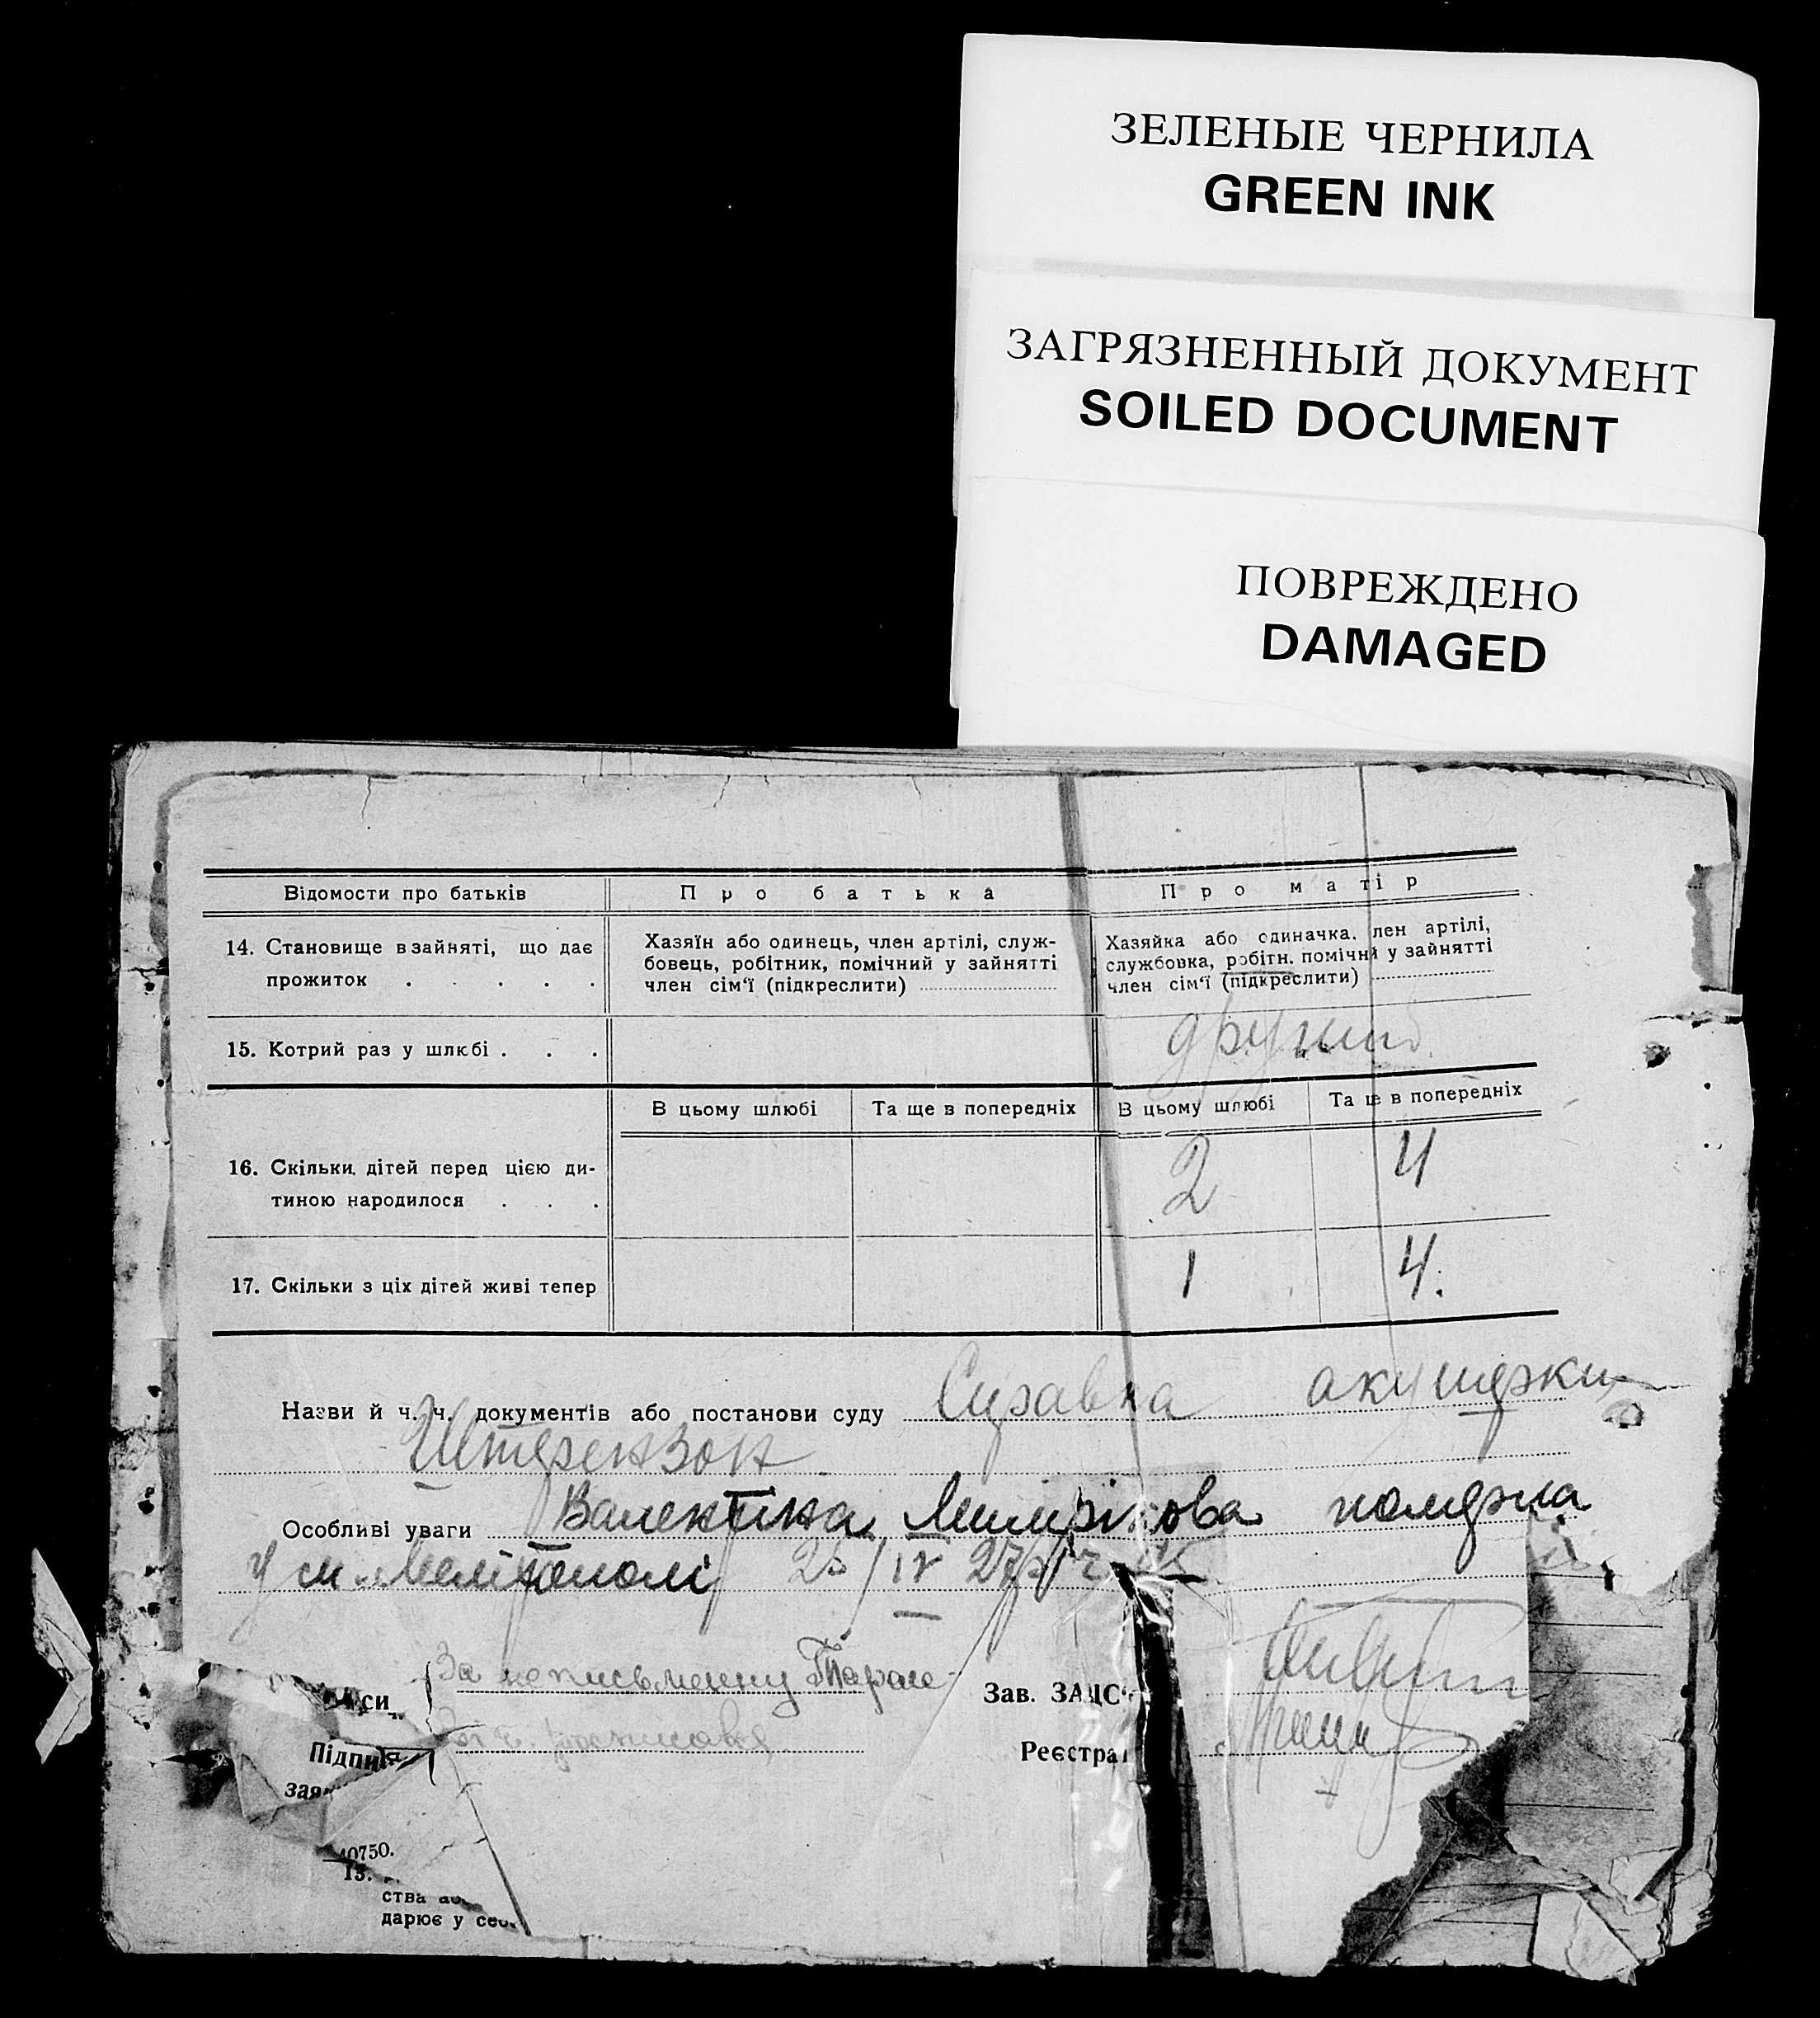 ЗЕЛЕНЫЕ ЧЕРНИЛА
GREEN INK
ЗАГРЯЗНЕННЫЙ ДОКУМЕНТ
SOILED DOCUMENT
ПОВРЕЖДЕНО
DAMAGED
Відомости про батьків Про батька Про матір
14. Становище в зайняті, що дає прожиток . . . . .
Хазяїн або одинець, член артілі, служ-
бовець, робітник, помічний у зайнятті
член сім'ї (підкреслити)
Хазяйка або одиначка. лен артілі,
службовка, робітн. помічний у зайнятті
член сім'ї (підкреслити)
15. Котрий раз у шлюбі . . . другий
В цьому шлюбі Та ще в попередніх В цьому шлюбі Та ще в попередніх
16. Скільки дітей перед цією ди-
тиною народилося . . . 2 4
17. Скільки з ціх дітей живі тепер 1 4.
Назви й ч. ч. документів або постанови суду Справка акушерки
Штерензон
Особливі уваги Валентіна померла
у м. Мелітополі
си За неписьменну
Підпи Зав. ЗАЦС
зая Реєстра
40750.
13.
ства
дарює у